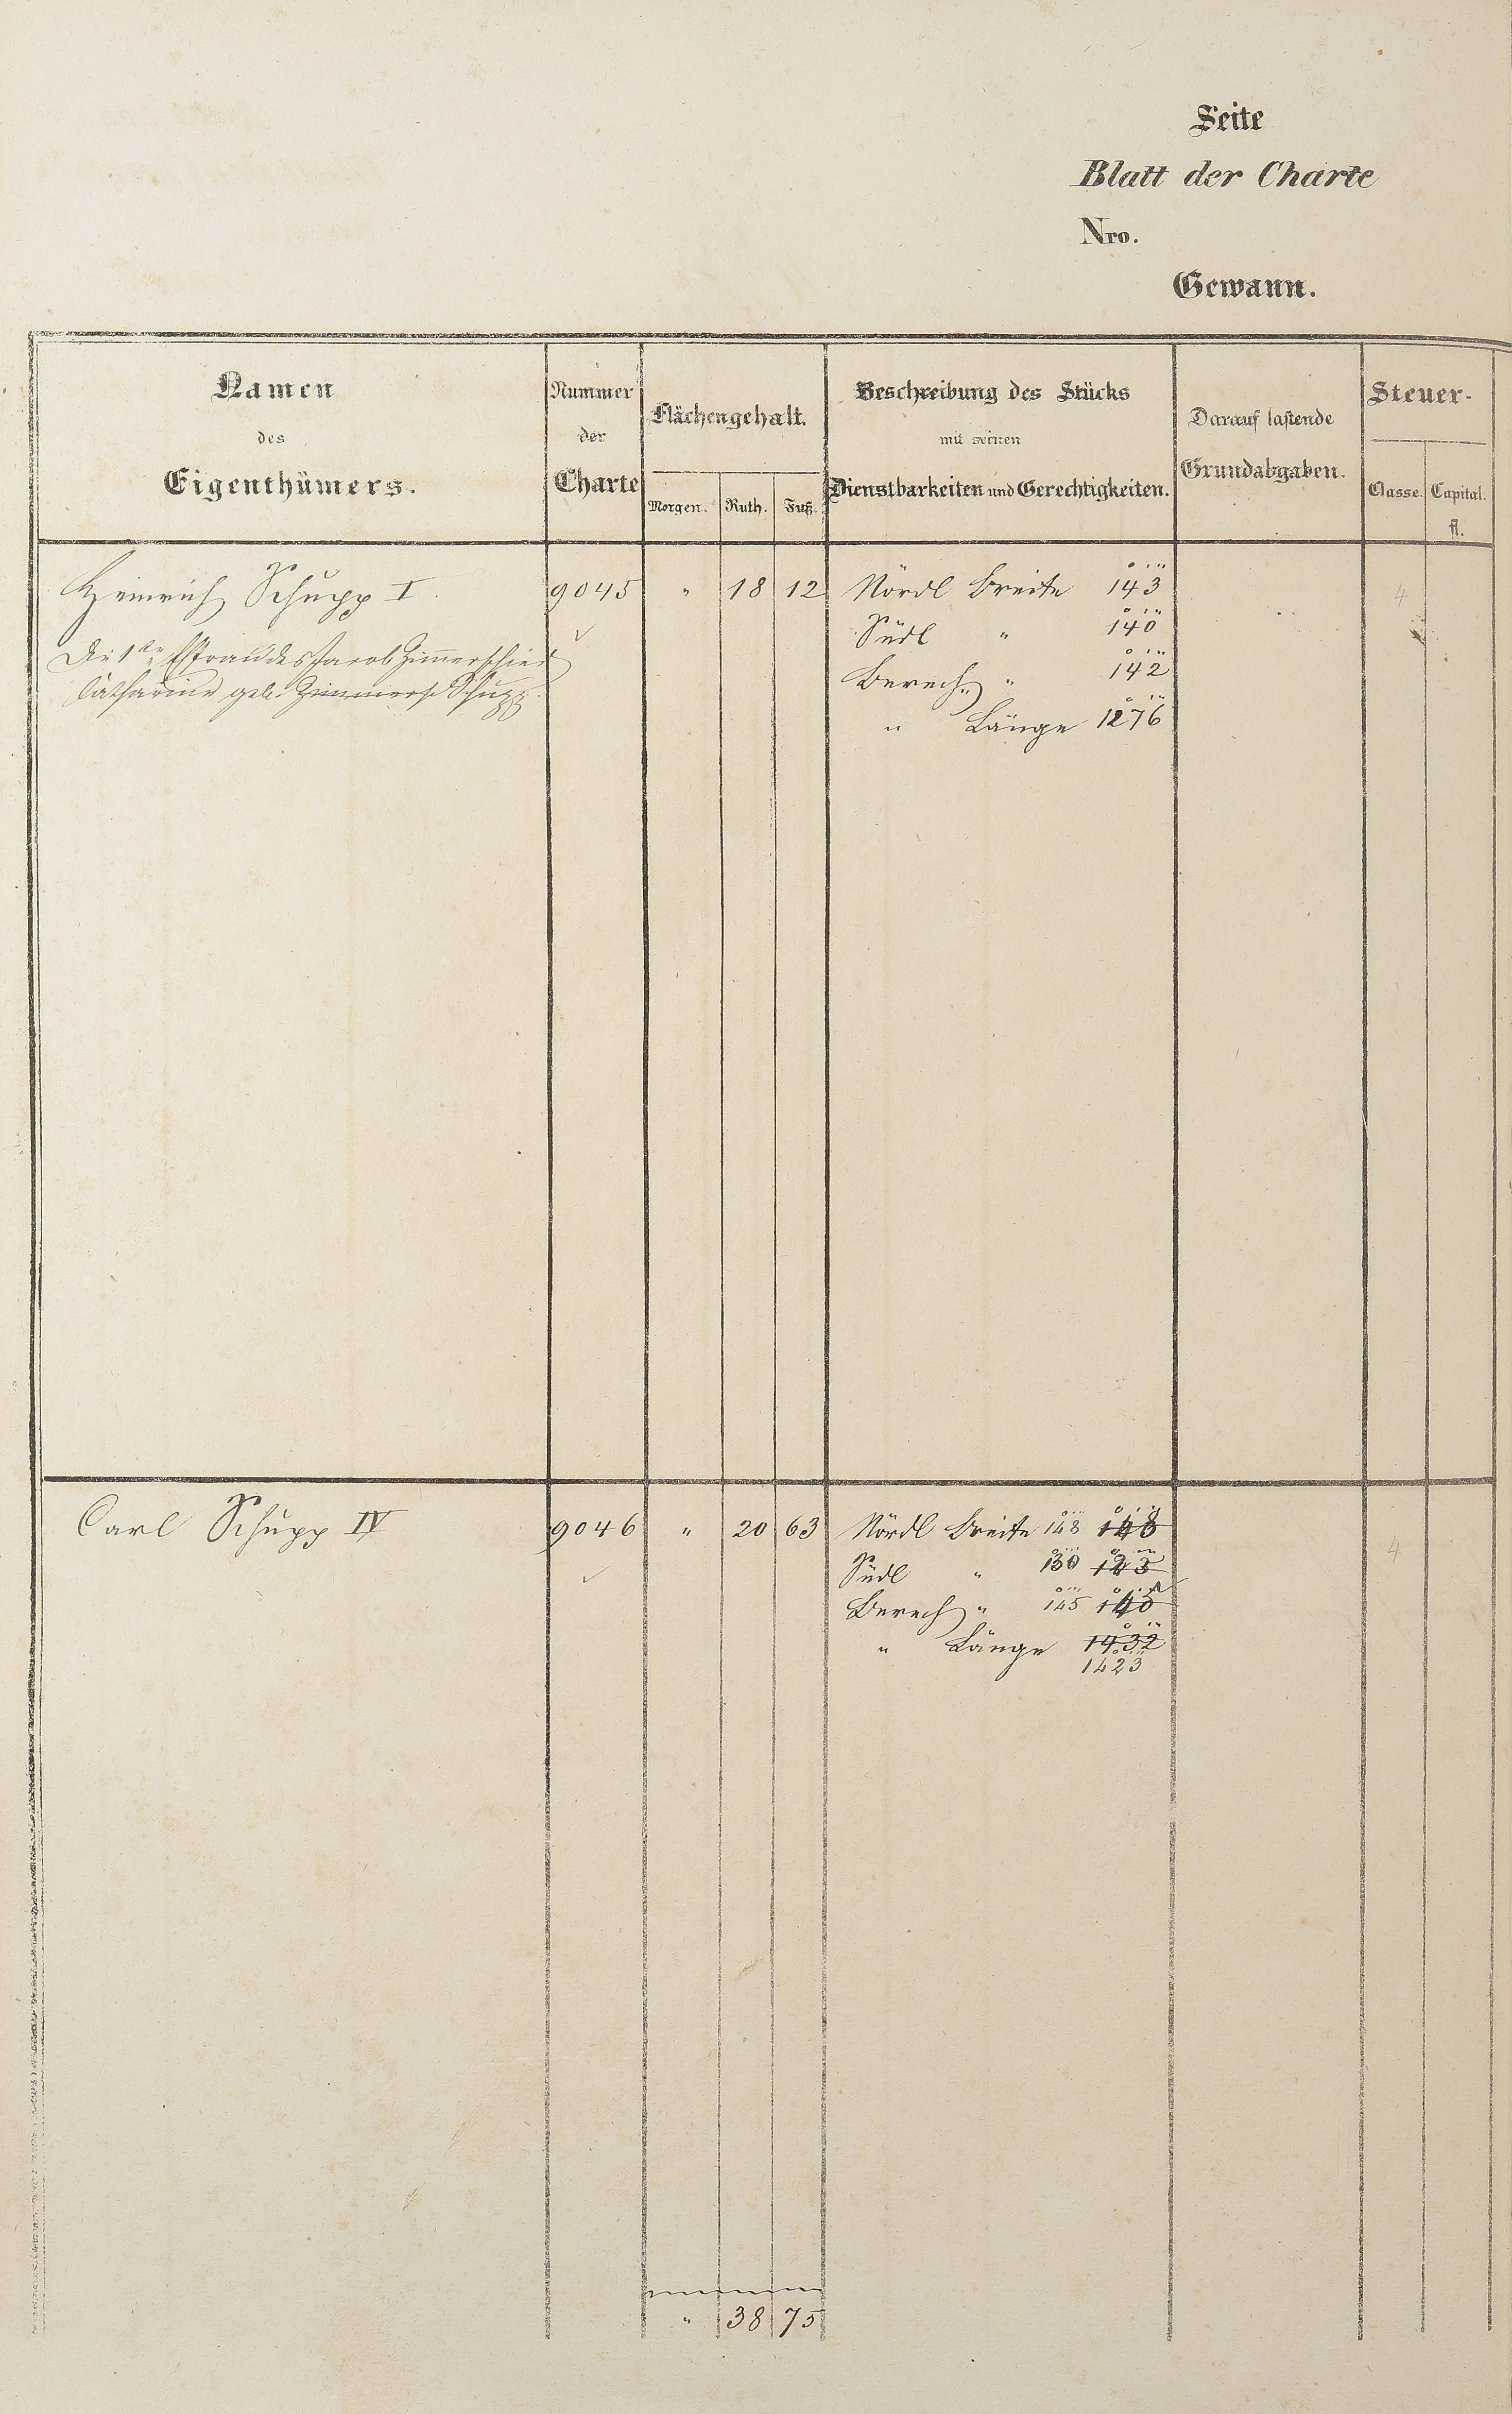 Seite
Blatt der Charte
Nro.
Gewann.
Namen
des
Eigenthümers.
Nummer
der
Charte
Flächengehalt.
Morgen. Ruth. Fuß.
Beschreibung des Stücks
mit seinen
Dienstbarkeiten und Gerechtigkeiten.
Darauf lastende
Grundabgaben.
Steuer-
Classe. Capital.
fl.
Heinrich Schupp I. 9045 " 18 12 Nördl Breite 143 4
Südl " 140
Die 1te Ehfrau des Jacob Zimmerschied
Berech. " 142
Catharine geb. Zimmersch Schupp.
" Länge 1276
Carl Schupp IV 9046 " 20 63 Nördl Breite 148 148 4
Südl " 130 123
Berech " 145 140
" Länge 1432
1423
" 38 75